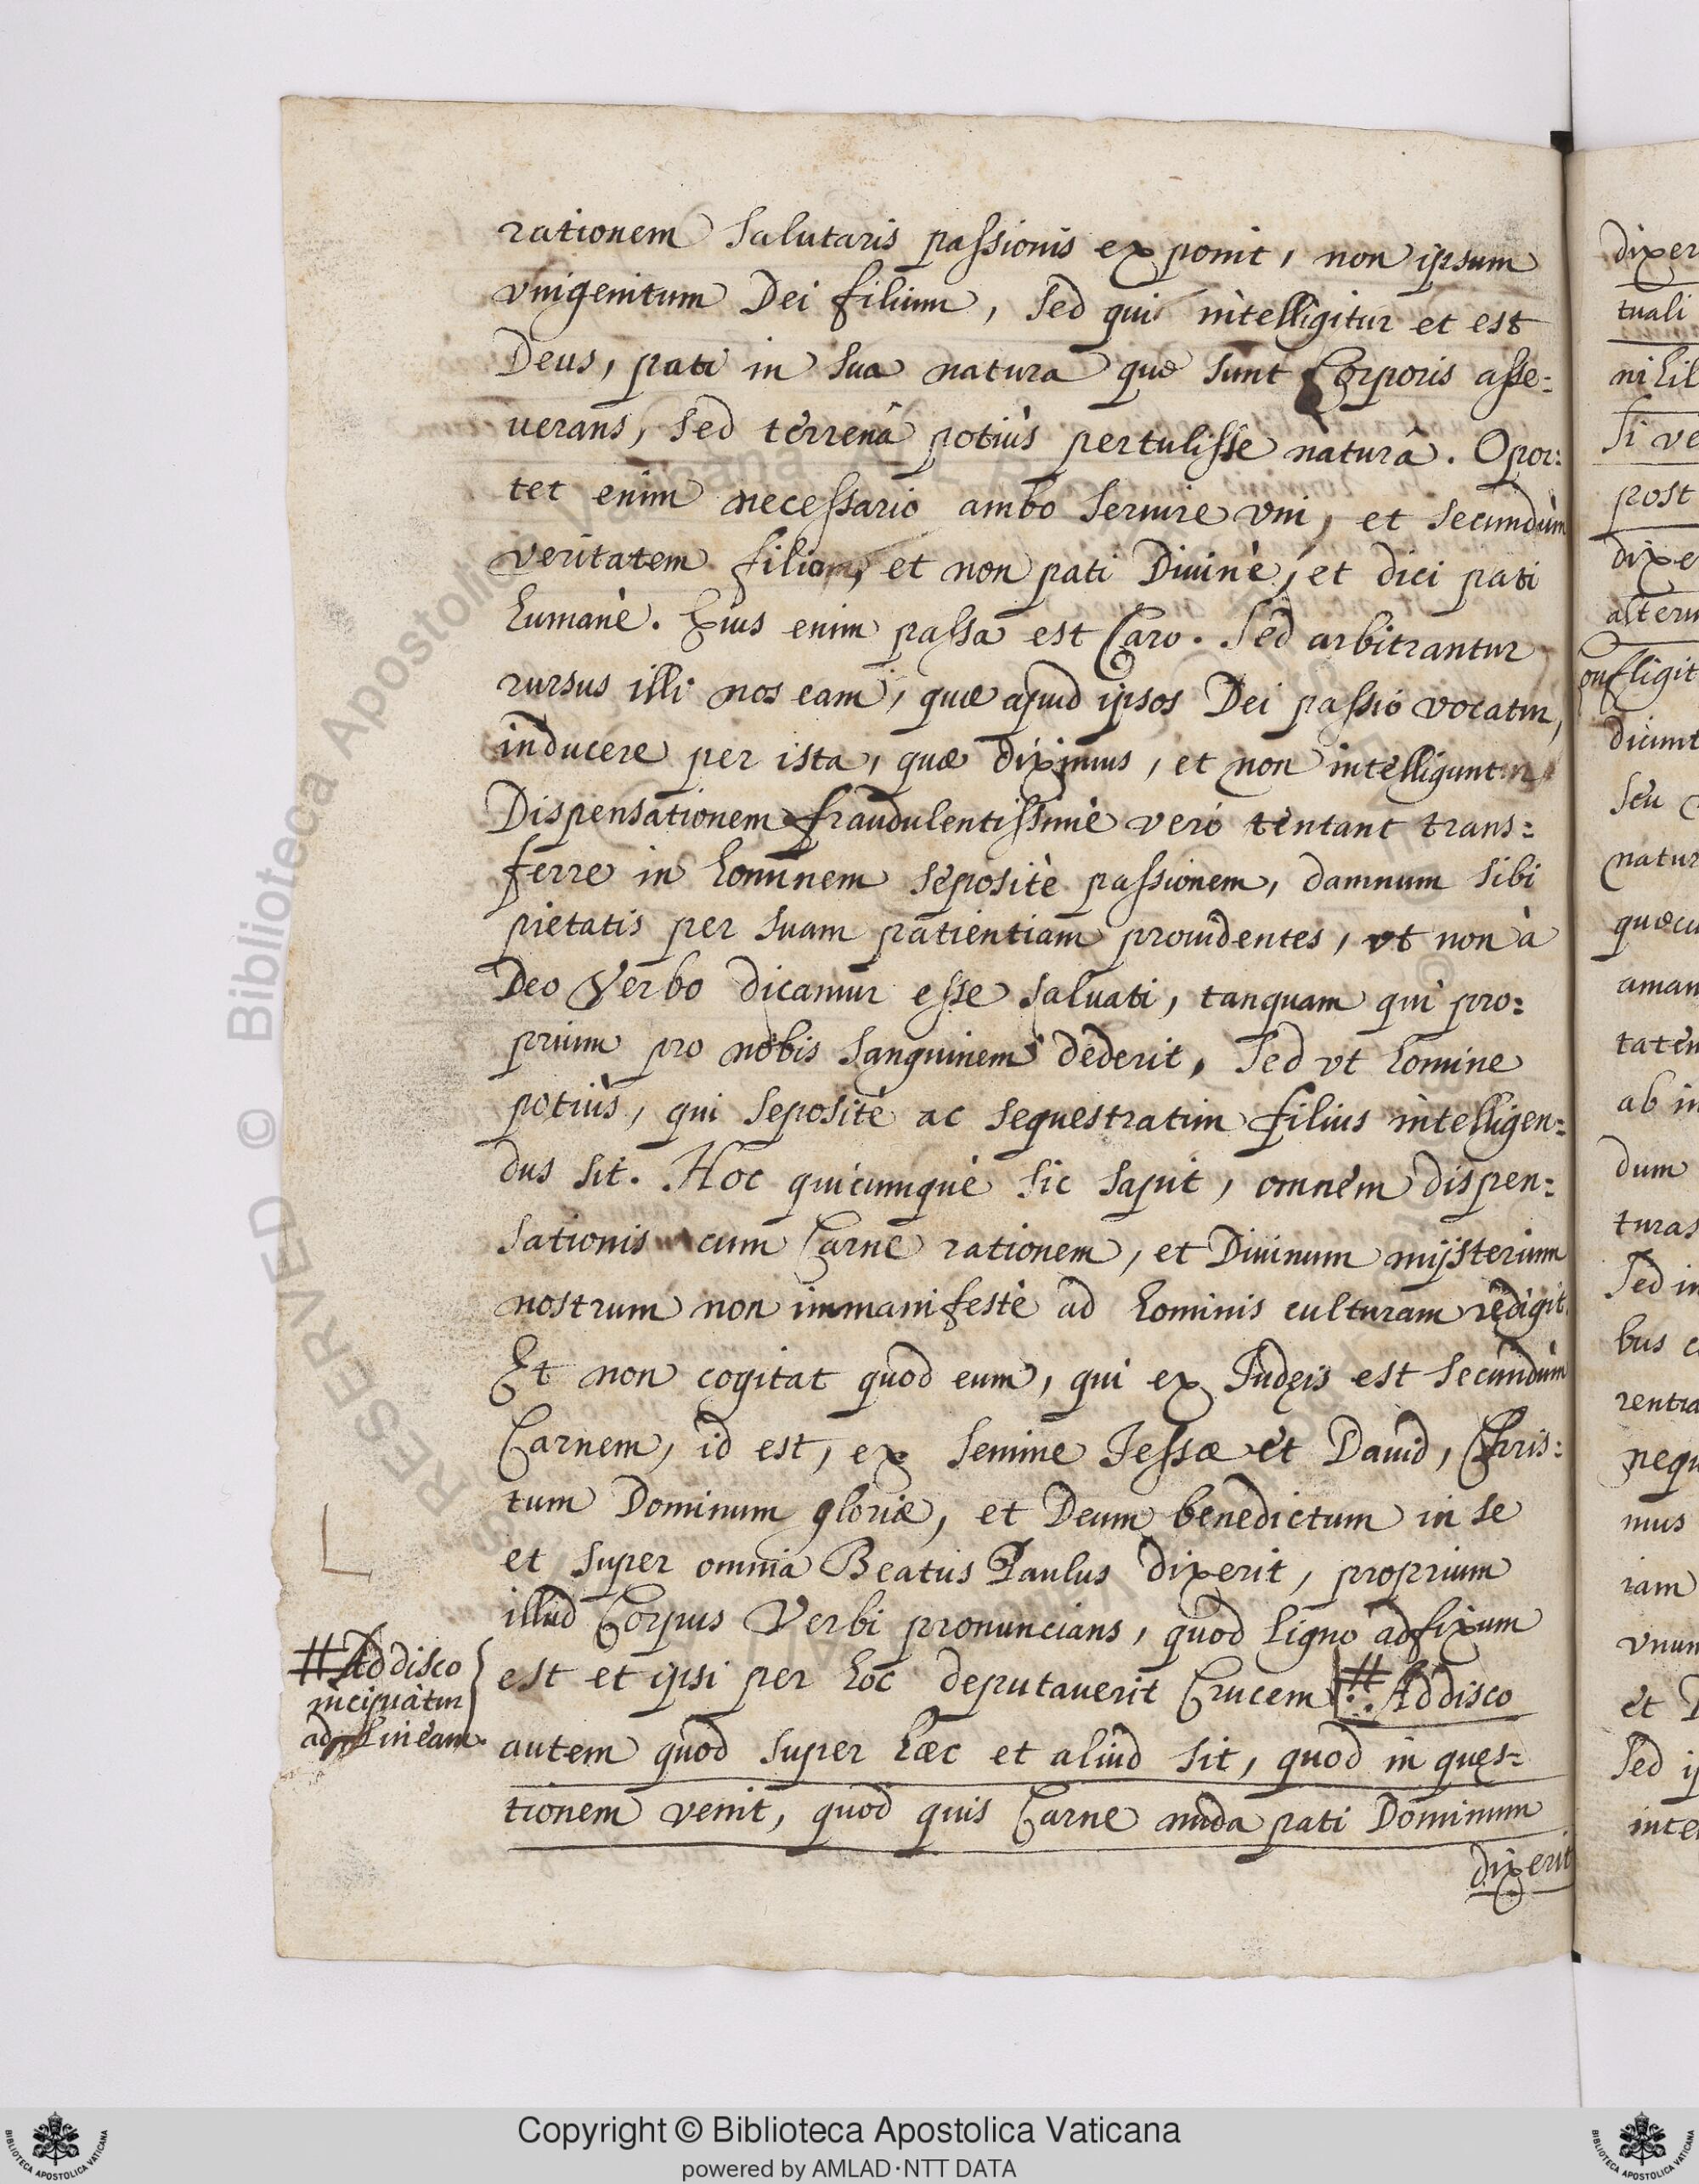 rationem salutaris passionis exponit, non ipsum
vnigenitum Dei filium, sed qui intelligitur et est
Deus, pati in sua natura quę sunt Corporis asse=
uerans, sed terrenâ potiùs pertulisse naturâ. Opor=
tet enim necessario ambo seruire vni, et secundùm
veritatem filio, et non pati Diuinè, et dici pati
humanè. Eius enim passa est Caro. Sed arbitrantur
rursus illi nos eam, quæ apud ipsos Dei passio vocatur,
inducere per ista, quæ diximus, et non intelligunt
Dispensationem fraudulentissimè verò tentant trans=
ferre in hominem sepositè passionem, damnum sibi
pietatis per suam patientiam prouidentes, vt non à
Deo Verbo dicamur esse saluati, tanquam qui pro=
prium pro nobis sanguinem dederit, sed vt homine
potiùs, qui sepositè ac sequestratim filius intelligen=
dus sit. Hoc quicumque sic sapit, omnem dispen=
sationis cum Carne rationem, et Diuinum mijsterium
nostrum non immanifestè ad hominis culturam redigit.
Et non cogitat quod eum, qui ex Iudęis est secùndùm
Carnem, id est, ex semine Jessæ et Dauid, Chris=
tum Dominum gloriæ, et Deum benedictum in se
et super omnia Beatus Paulus dixerit, proprium
illud Corpus Verbi pronuncians, quod ligno adfixum
est et ipsi per hoc deputauerit Crucem # Addisco
autem quod super hæc et aliud sit, quod in quęs=
tionem venit, quod quis Carne nuda pati Dominum
dixerit
# Addisco
incipiatur
ad lineam.
dixer
tuali
nihil
si ve
post
dixe
alteru
onfligit
dicunt
seu
natur
quæcu
aman
tatem
ab in
dum
turas
Sed in
bus
rentia
nequ
mus
iam
vnum
et
Sed
inte
© Biblioteca Apostolica Vaticana
RESERVED
Copyright © Biblioteca Apostolica Vaticana
powered by AMLAD·NTT DATA
BIBLIOTECA APOSTOLICA VATICANA
BIBLIOTECA APOSTOLICA VATICANA